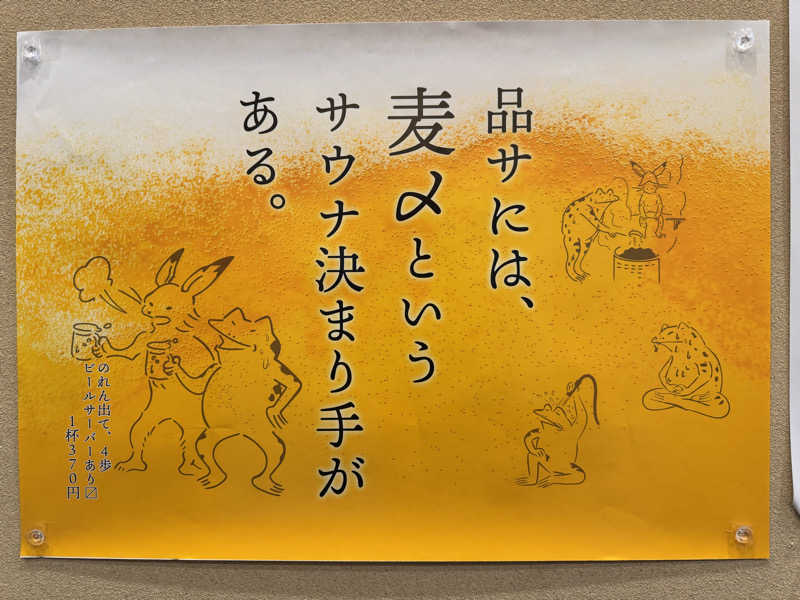 品サには、
麦〆という
サウナ決まり手が
ある。
のれん出て、4歩
ビールサーバーあり〼
1杯370円